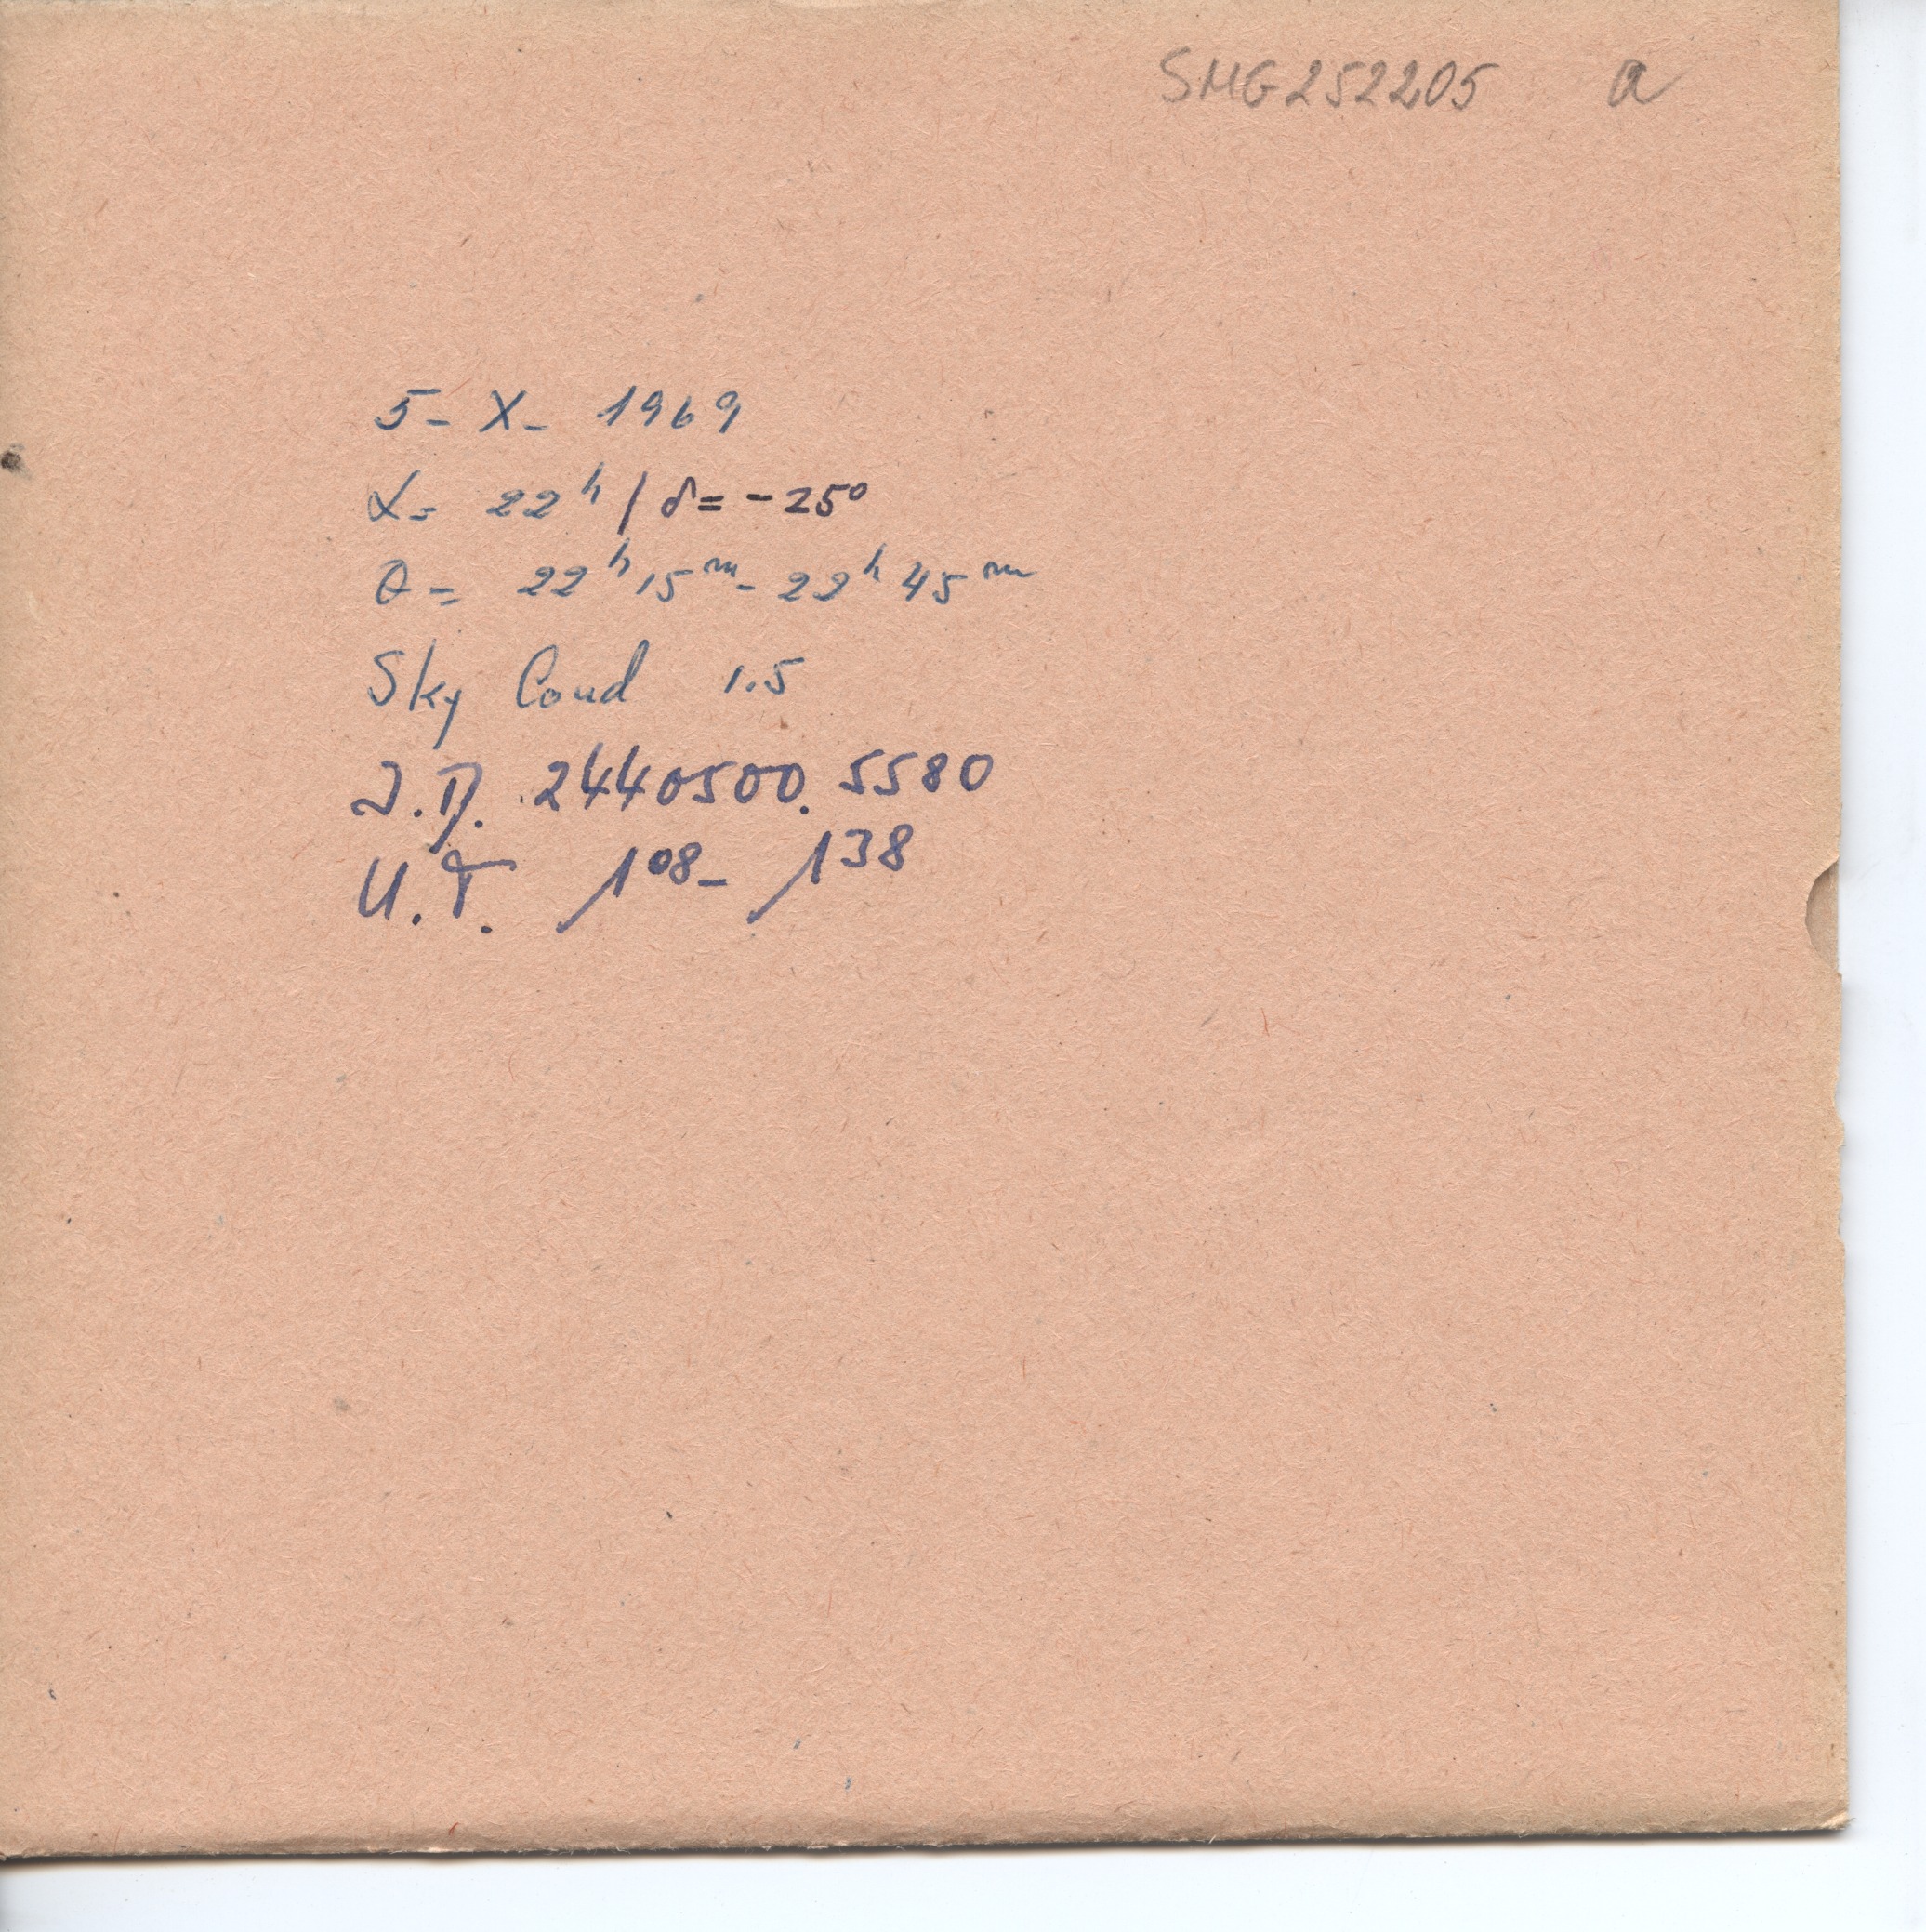 SMG252205 a
5- X- 1969
α= 22ʰ / δ= -25°
θ= 22ʰ15ᵐ- 22ʰ45ᵐ
Sky Cond 1.5
J.D. 2440500.5580
U.T. 1⁰⁸- 1³⁸